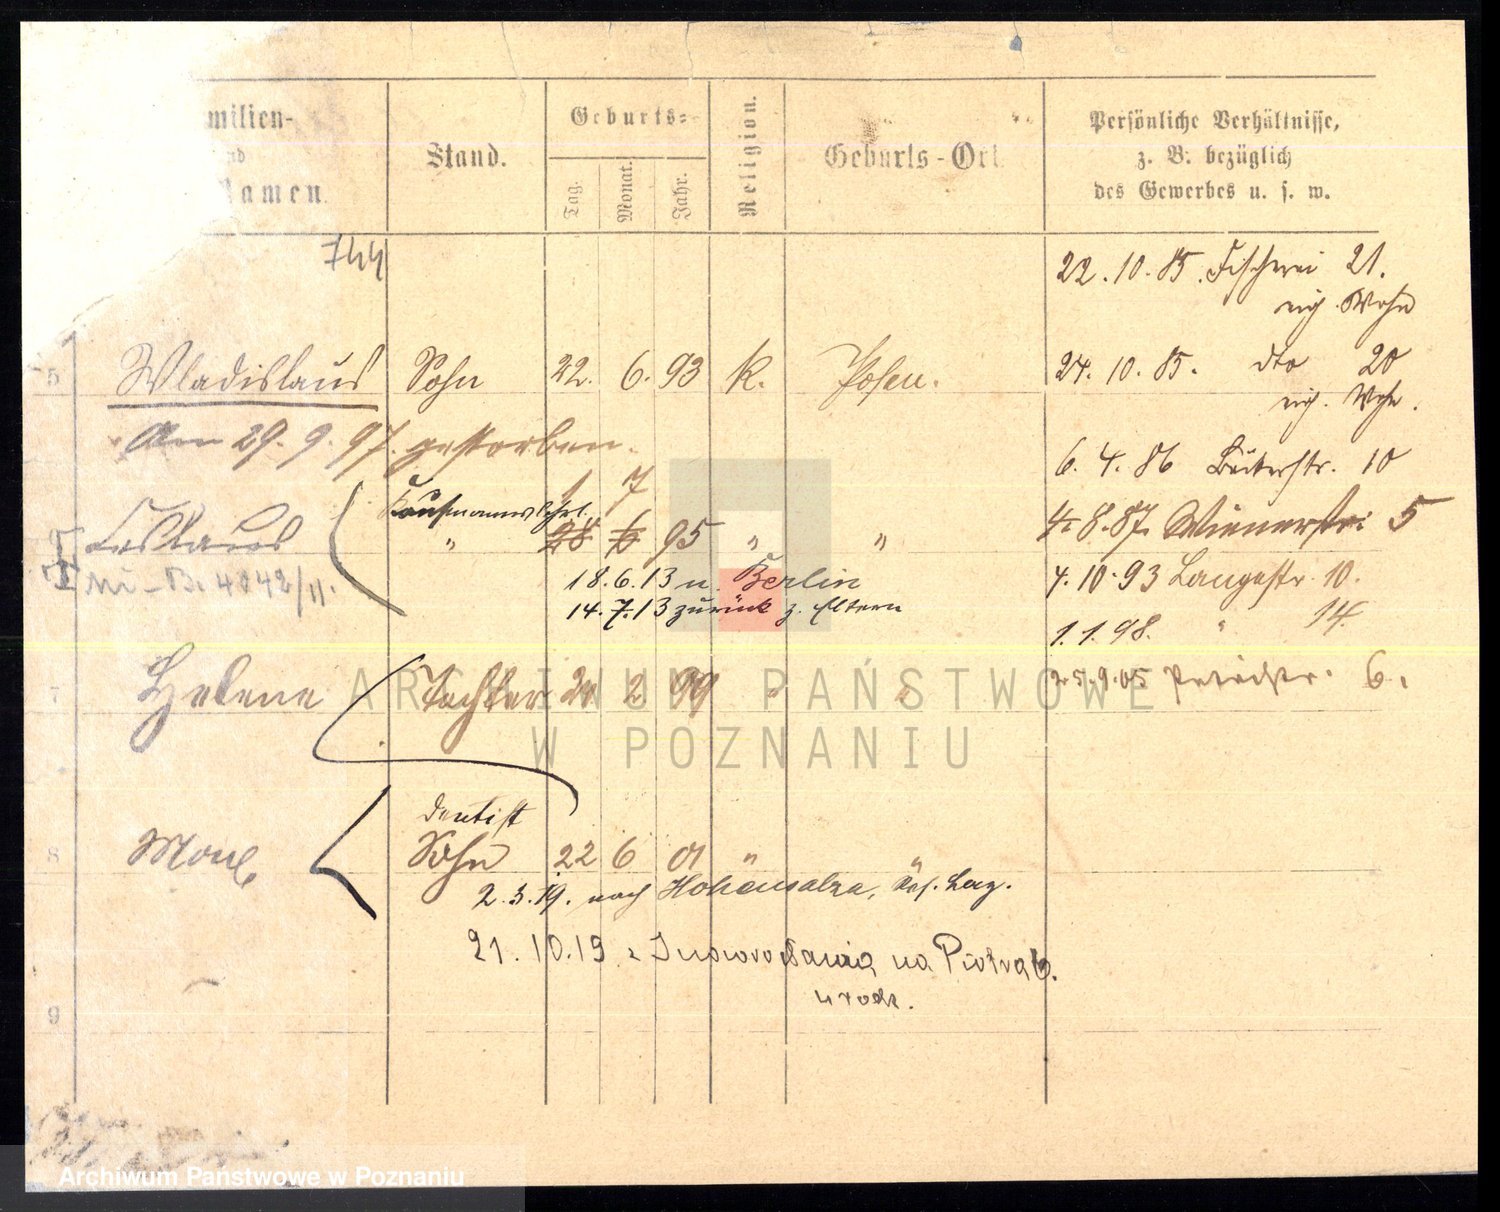 milien-
nd
amen.
Stand.
Geburts-
Tag.
Monat.
Jahr.
Religion.
Geburts-Ort.
Persönliche Verhältnisse,
z. B. bezüglich
des Gewerbes u. s. w.
744
22. 10. 85. Fischerei 21.
eig. Wohn
5 Wladislaus Sohn 22. 6. 93 k. Posen.
24. 10. 85. dto 20
eig. Woh.
Am 29. 9. 97. gestorben.
6. 4. 86 10
1 7
Kaufmannslehrl.
" 28 6 95 " "
4. 8. 87. Wienerstr. 5
4042/11.
18. 6. 13 n. Berlin
4. 10. 93 Langestr. 10.
14. 7. 13 zurück z. Eltern
1. 1. 98. " 14.
7 Helene Tochter 20 2 99 " "
25. 9. 05 6.
ARCHIWUM PAŃSTWOWE
W POZNANIU
dentist
8 Sohn 22 6 01 " "
2. 3. 19. nach Hohensalza,
21. 10. 19 z Inowrocławia na Piotra 6.
u rodz.
9
Archiwum Państwowe w Poznaniu